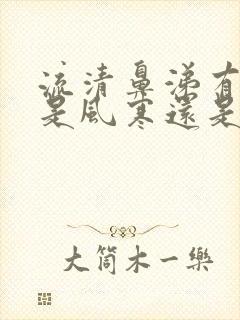 流清鼻涕有
是風寒還是
大筒木一樂